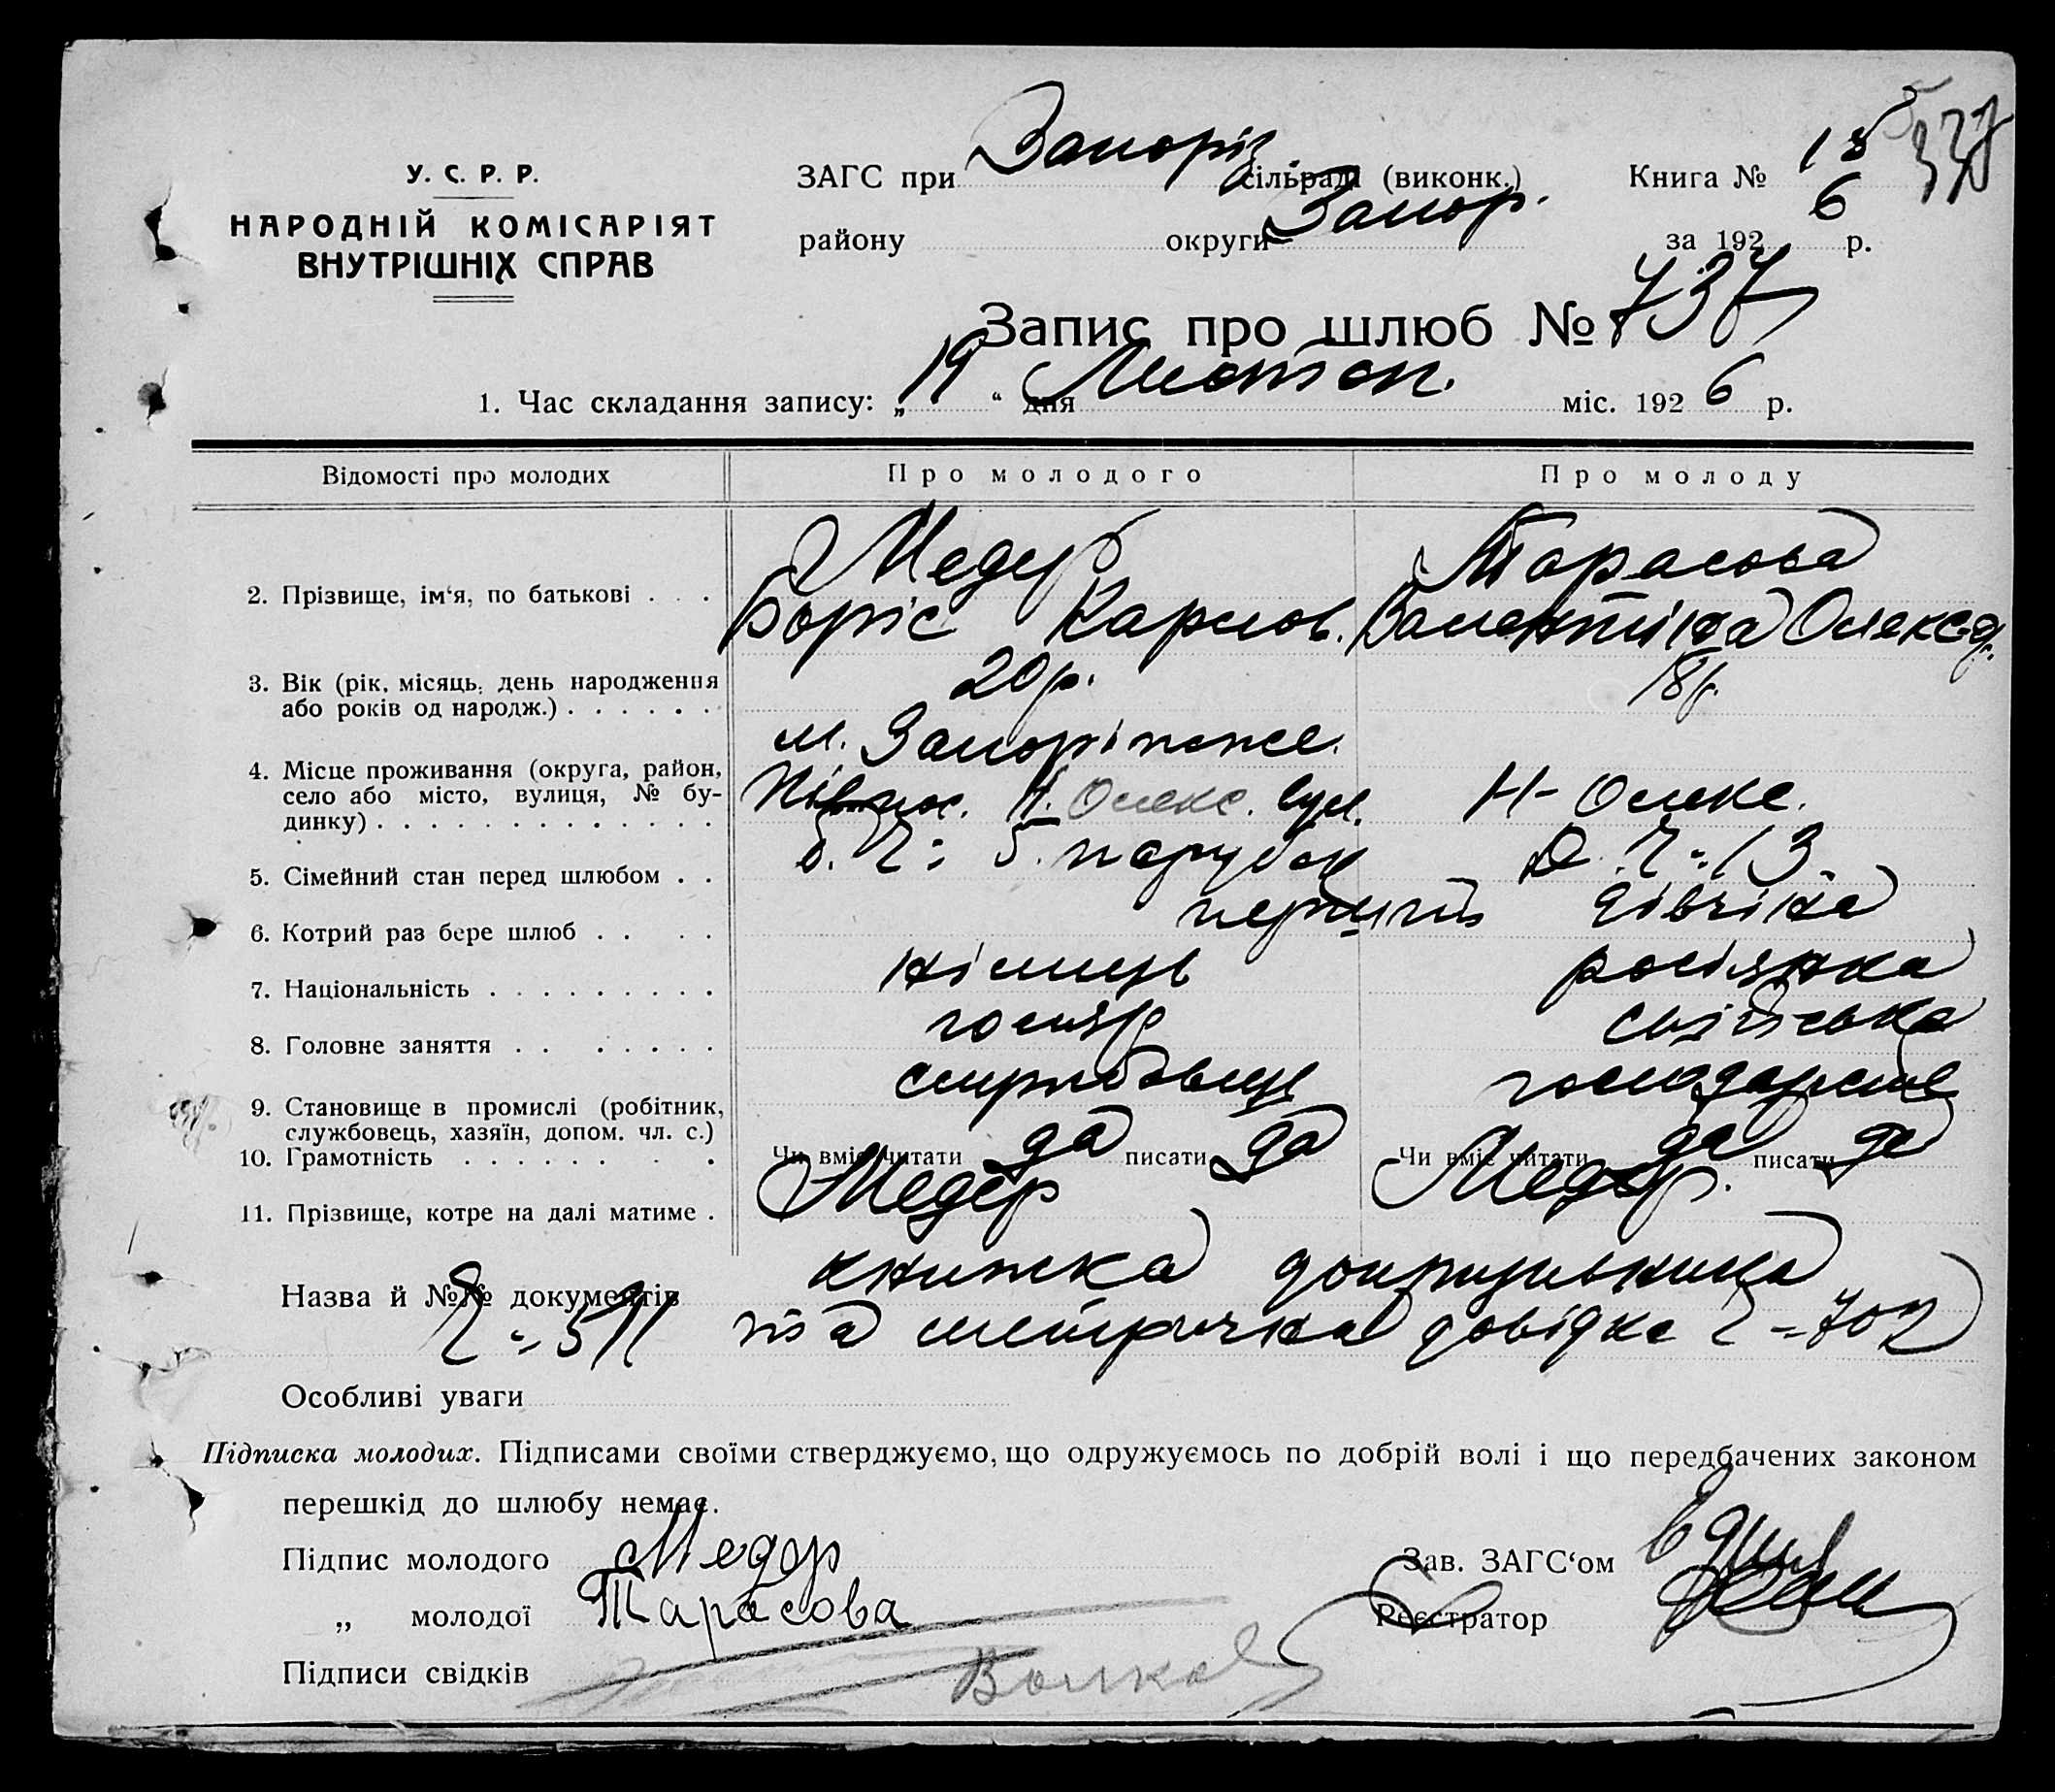 У. С. Р. Р.
НАРОДНІЙ КОМІСАРІЯТ
ВНУТРІШНІХ СПРАВ
ЗАГС при Запоріз сільраді (виконк.) Книга № 18
району округи Запор. за 1926 р.
Запис про шлюб № 737
1. Час складання запису: „19“ дня Листоп. міс. 1926 р.
Відомості про молодих Про молодого Про молоду
2. Прізвище, ім‘я, по батькові . . . Медер Тарасова
Боріс Карлов. Валентіна Олекс-д.
3. Вік (рік, місяць, день народження або років од народж.) . . . . . . 20 р. 18 р.
4. Місце проживання (округа, район, село або місто, вулиця, № будинку) . . . . . . . . . . . . . м. Запоріжже.
Н. Олекс. вул. Н-Олекс.
б. Ч= 5. Ч= 13
5. Сімейний стан перед шлюбом . . парубок дівчіна
6. Котрий раз бере шлюб . . . . перший
7. Національність . . . . . . . . . німець росіянка
8. Головне заняття . . . . . . . сільське
9. Становище в промислі (робітник, службовець, хазяїн, допом. чл. с.) службовець господарство
10. Грамотність . . . . . . . . Чи вміє читати да писати да Чи вміє читати да писати да
11. Прізвище, котре на далі матиме . Медер Медер.
Назва й №№ документів книжка допризивника
Ч= 511 та метрична довідка Ч= 702
Особливі уваги
Підписка молодих. Підписами своїми стверджуємо, що одружуємось по добрій волі і що передбачених законом
перешкід до шлюбу немає.
Підпис молодого Медер Зав. ЗАГС‘ом
„ молодої Тарасова Реєстратор
Підписи свідків Волков